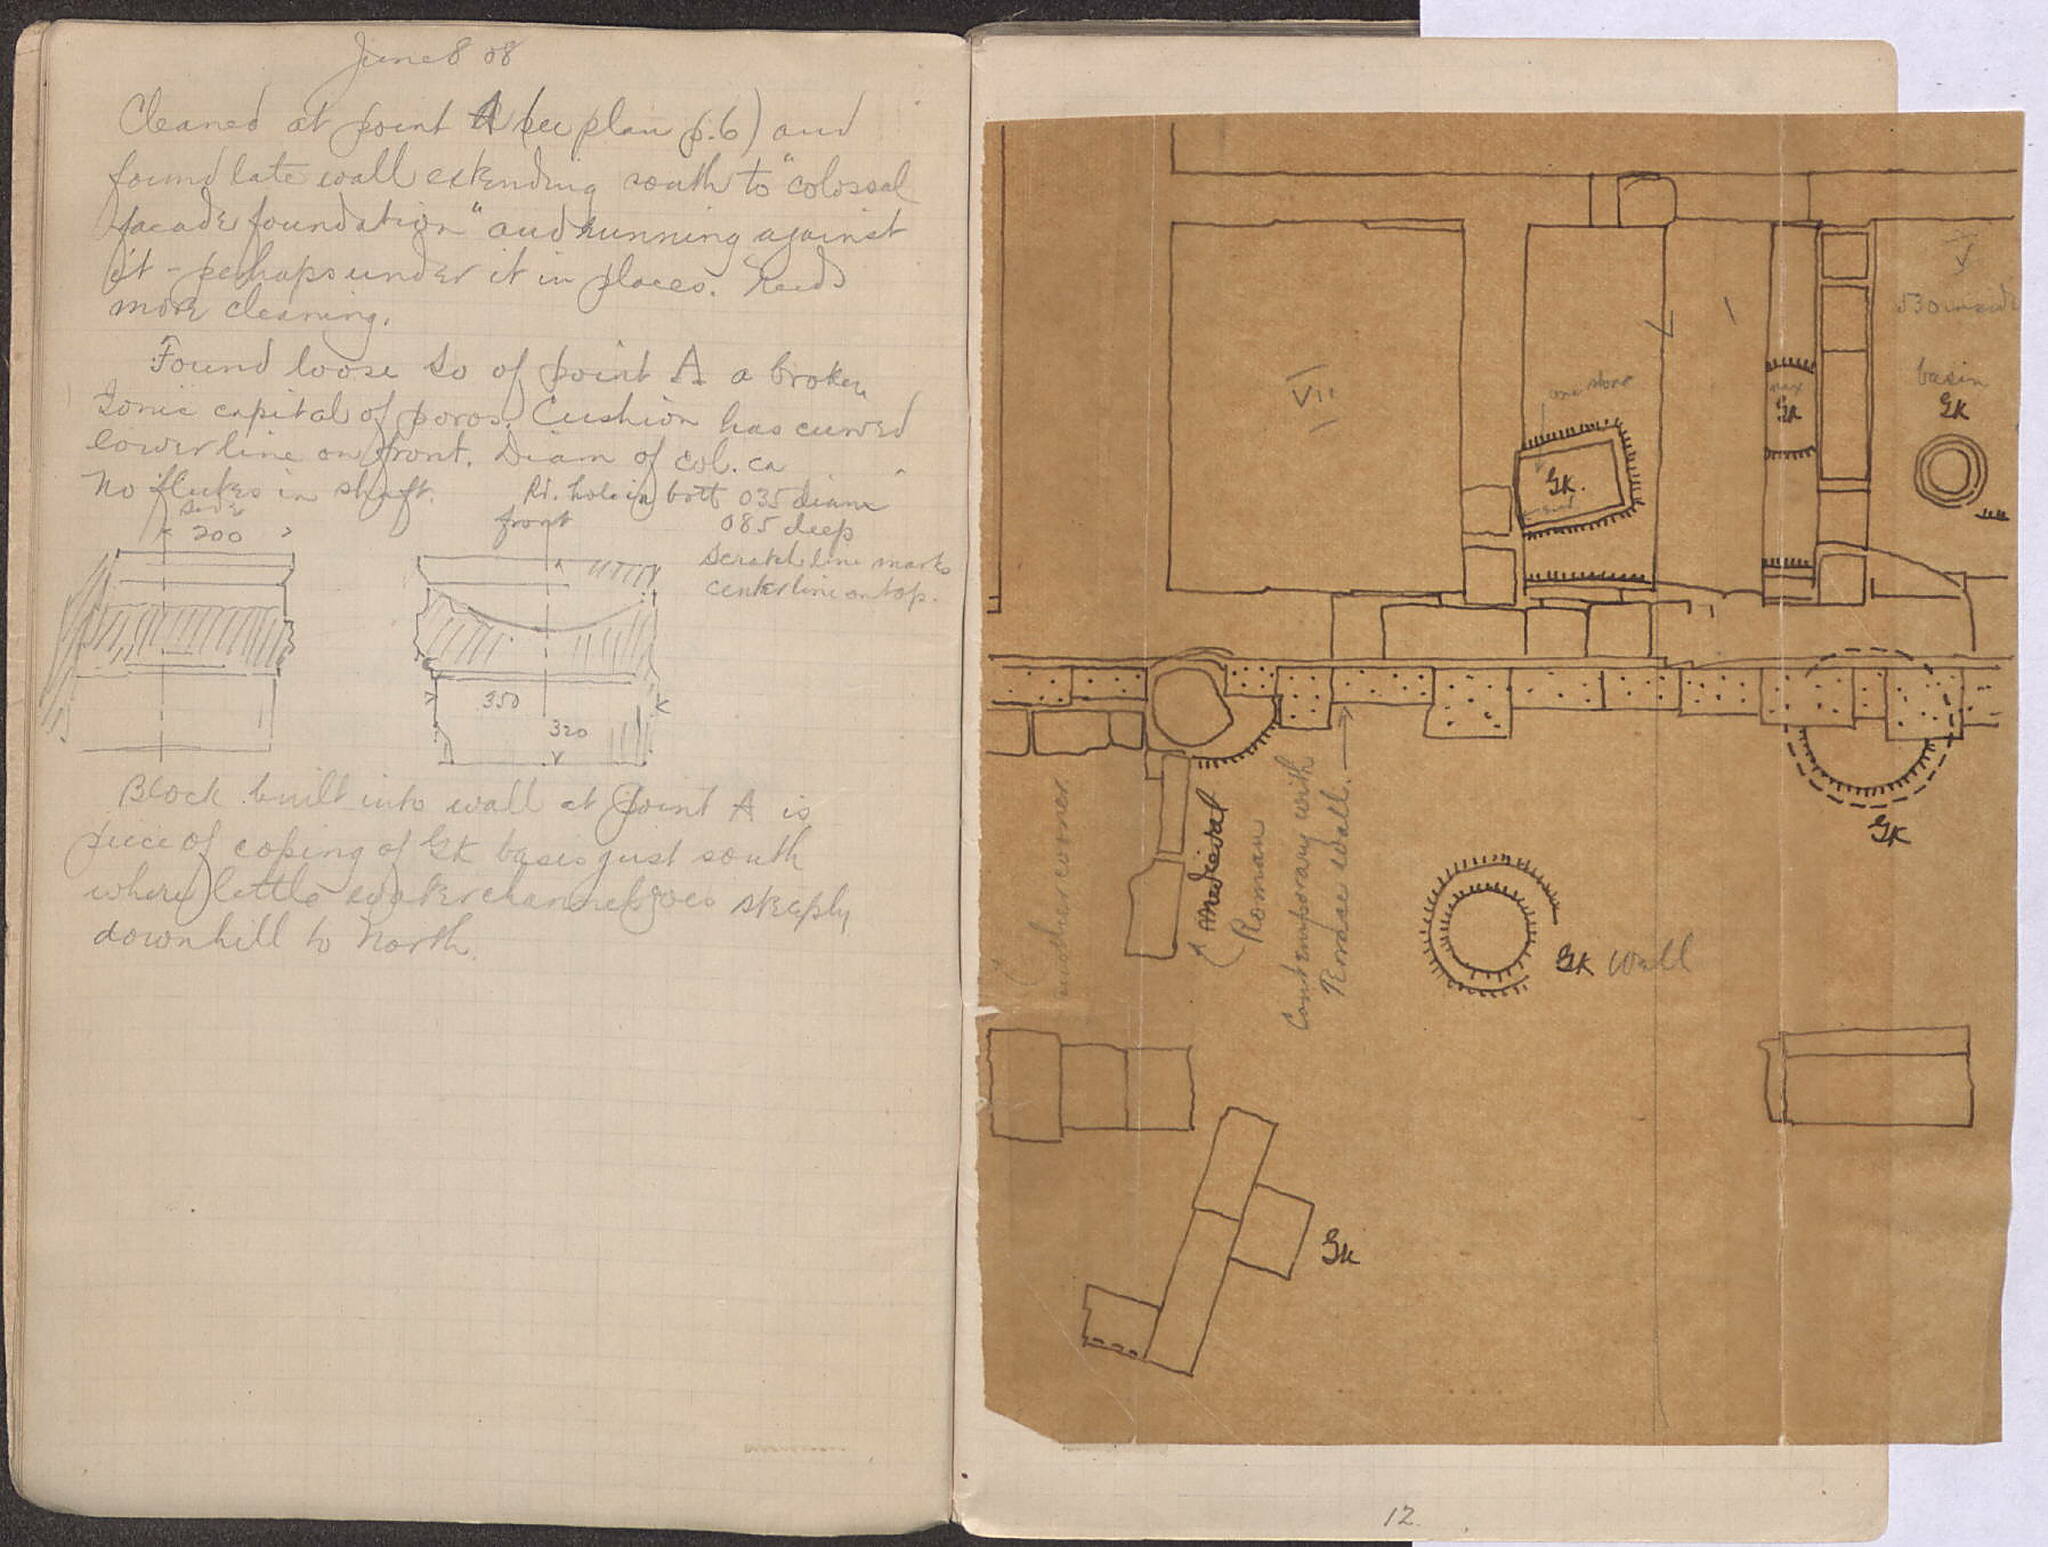 June 8 08
Cleaned at point A (see plan p. 6) and
found late wall extending south to "colossal
facade foundation" and running against
it - perhaps under it in places. Needs
more cleaning.
Found loose So of point A a broken
Ionic capital of poros. Cushion has curved
lower line on front. Diam of col. ca
No flutes in shaft. Rd. hole in bott 035 diam
side
front
085 deep
200
Scratch line marks
centerline on top.
350
320
Block built into wall at point A is
piece of coping of GK basis just south
where little water channel goes steeply
downhill to North.
V
530 inside
V
VII
one stone
GK
GK.
basin
GK
another corner
Medieval
Roman
Contemporary with
GK
GK wall
GK
12